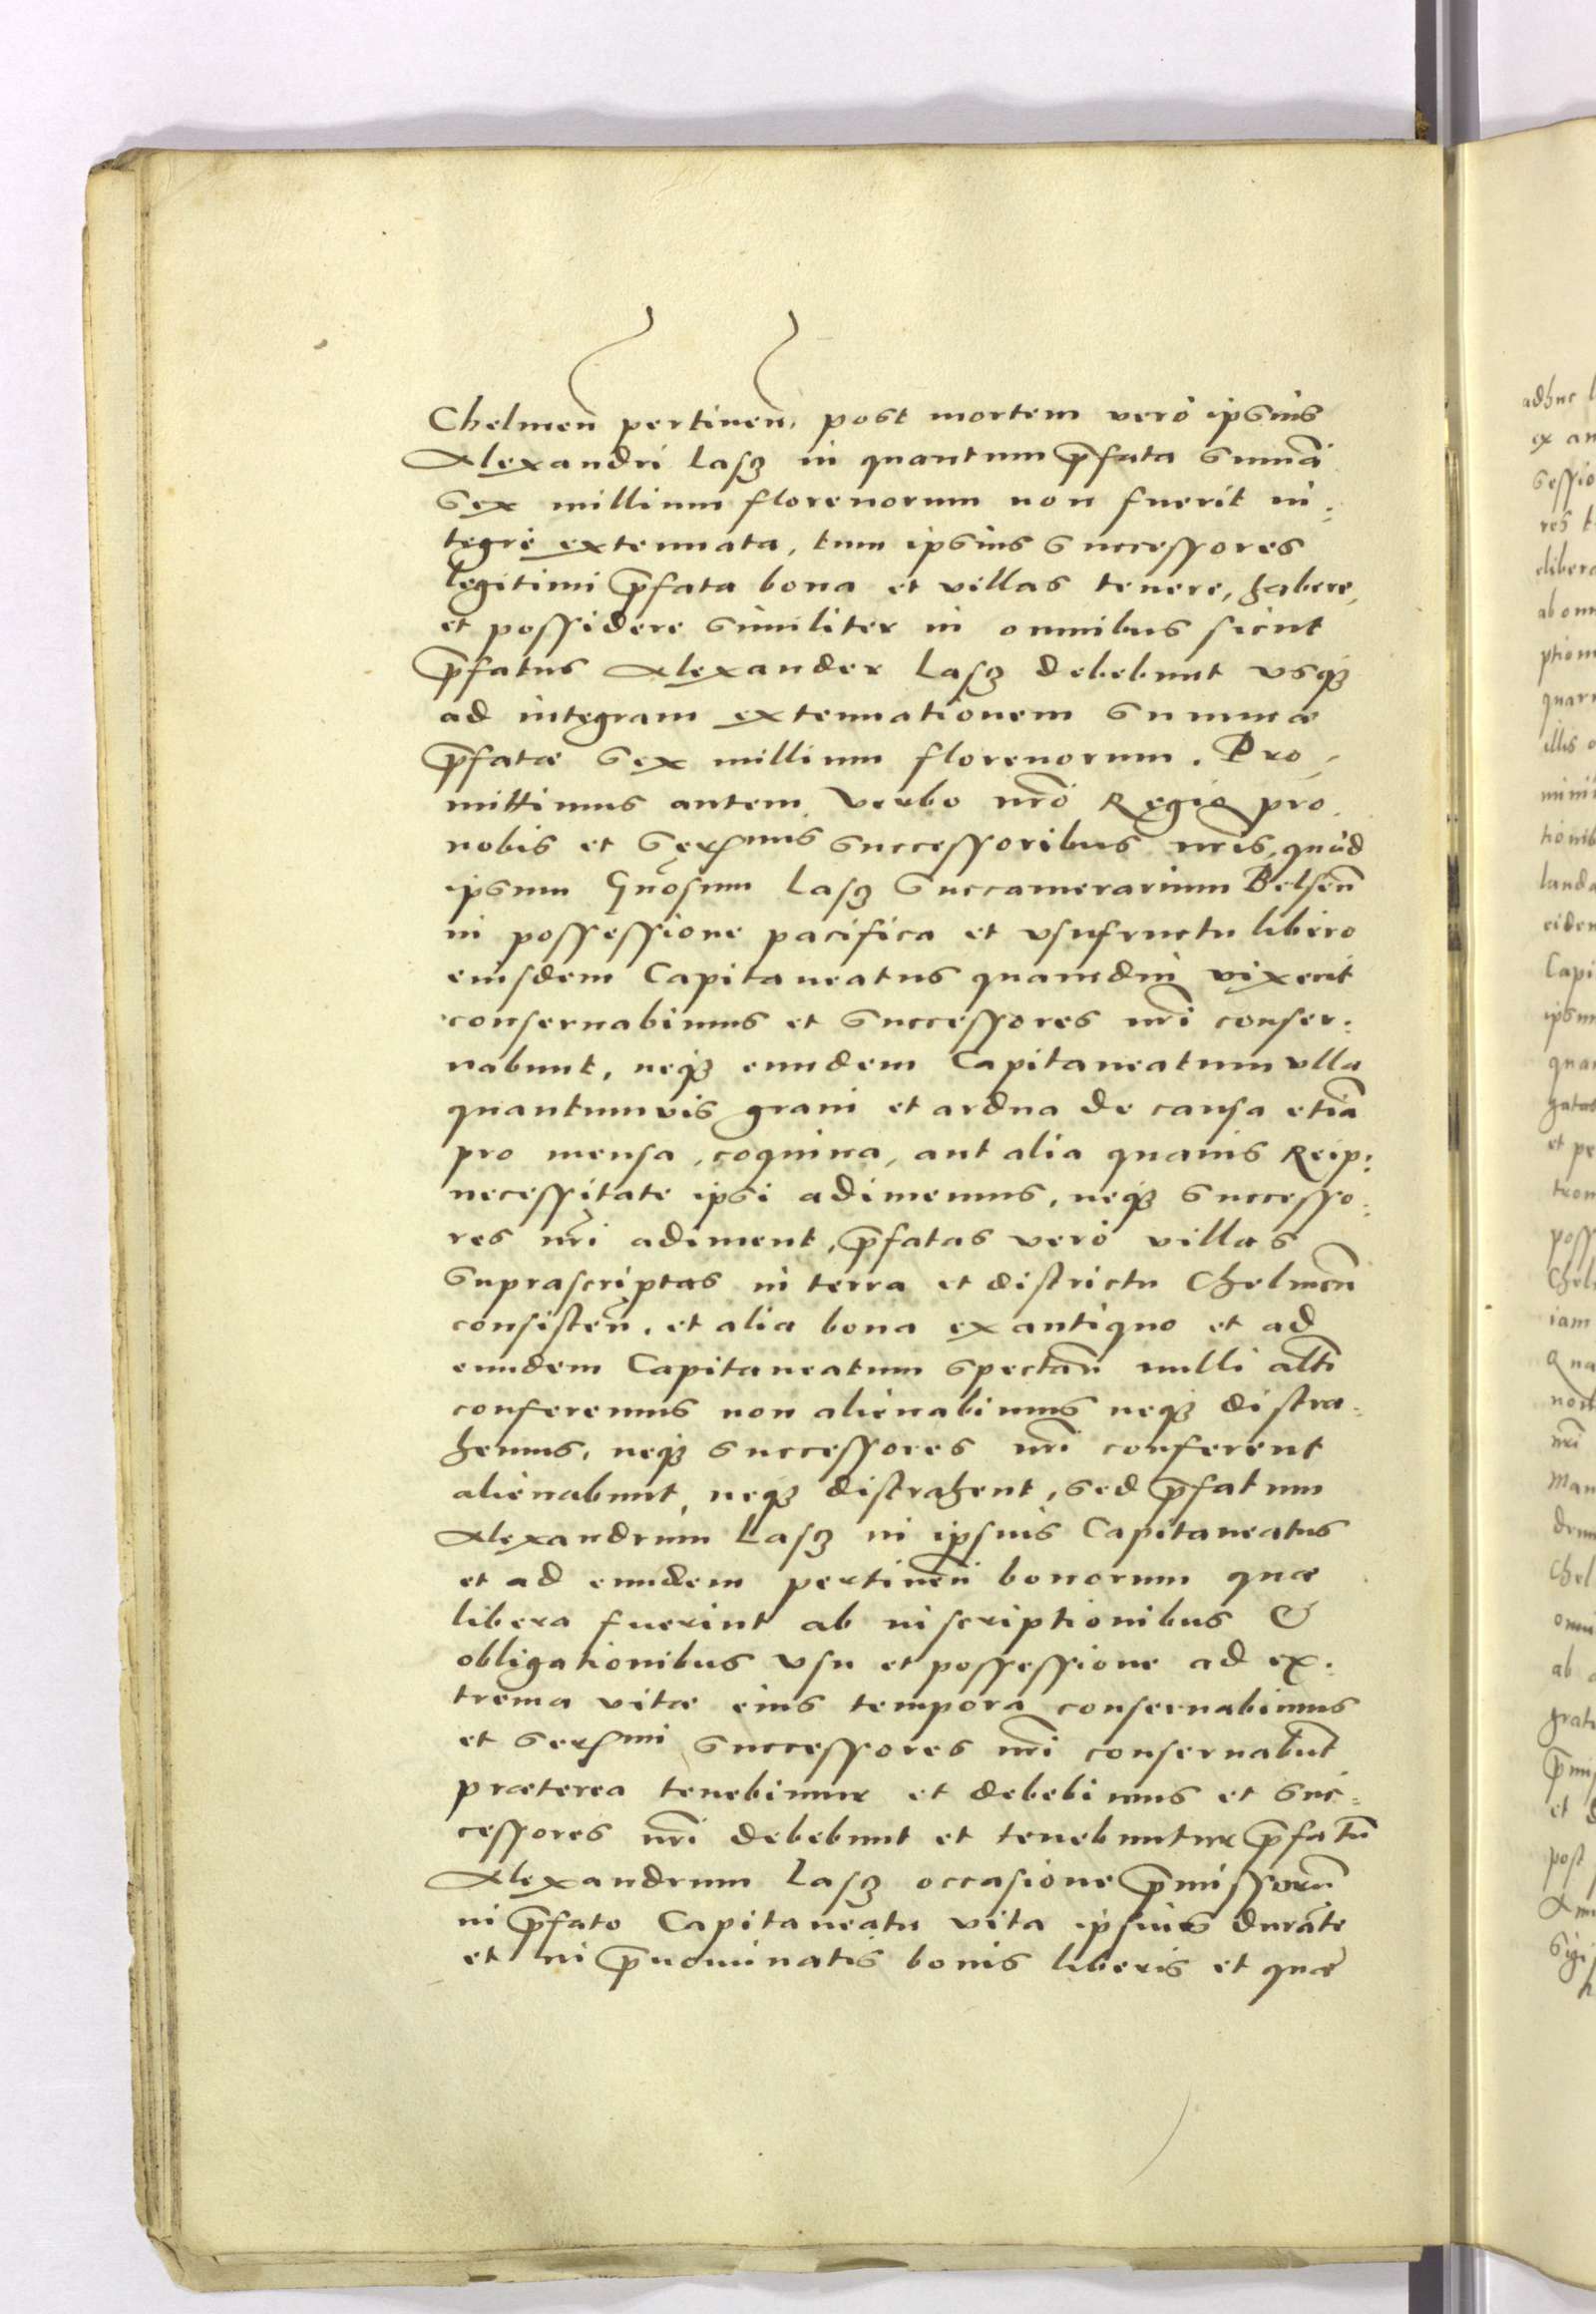 Chelmeñ pertineñ, post mortem verò ipsius
Alexandri LasƷ in quantum p̃fata sum̃a
sex millium florenorum non fuerit in:
tegrè extenuata, tum ipsius successores
legitimi p̃fata bona et villas tenere, habere,
et possidere similiter in omnibus sicut
p̃fatus Alexander LasƷ debebunt vsqƷ
ad integram extenuationem summæ
p̃fatæ sex millium florenorum. Pro-
mittimus autem verbo nr̃o Regio pro
nobis et Serssmis successoribus nr̃is, quòd
ipsum Gñosum LasƷ Succamerarium Belseñ
in possessione pacifica et vsufructu libero
eiusdem Capitaneatus quamdiu vixerit
conseruabimus et successores nr̃i conser:
uabunt, neqƷ eundem Capitaneatum vlla
quantumuis graui et ardua de causa etiã
pro mensa, coquina, aut alia quauis Reip:
necessitate ipsi adimemus, neqƷ successo:
res nr̃i adiment, p̃fatas verò villas
suprascriptas in terra et districtu Chelmeñ
consisteñ. et alia bona ex antiquo et ad
eundem Capitaneatum spectañ nulli altĩ
conferemus non alienabimus neqƷ distra:
hemus, neqƷ successores nr̃i conferent
alienabunt, neqƷ distrahent, sed p̃fatum
Alexandrum LasƷ in ipsius Capitaneatus
et ad eundem pertineñ bonorum quæ
libera fuerint ab inscriptionibus &
obligationibus vsu et possessione ad ex:
trema vitæ eius tempora conseruabimus
et Serssmi successores nr̃i conseruabũt
præterea tenebimur et debebimus et suc:
cessores nr̃i debebunt et tenebuntur p̃fatũ
Alexandrum LasƷ occasione p̃missorũ
in p̃fato Capitaneatu vita ipsius durãte
et in p̃nominatis bonis liberis et quæ